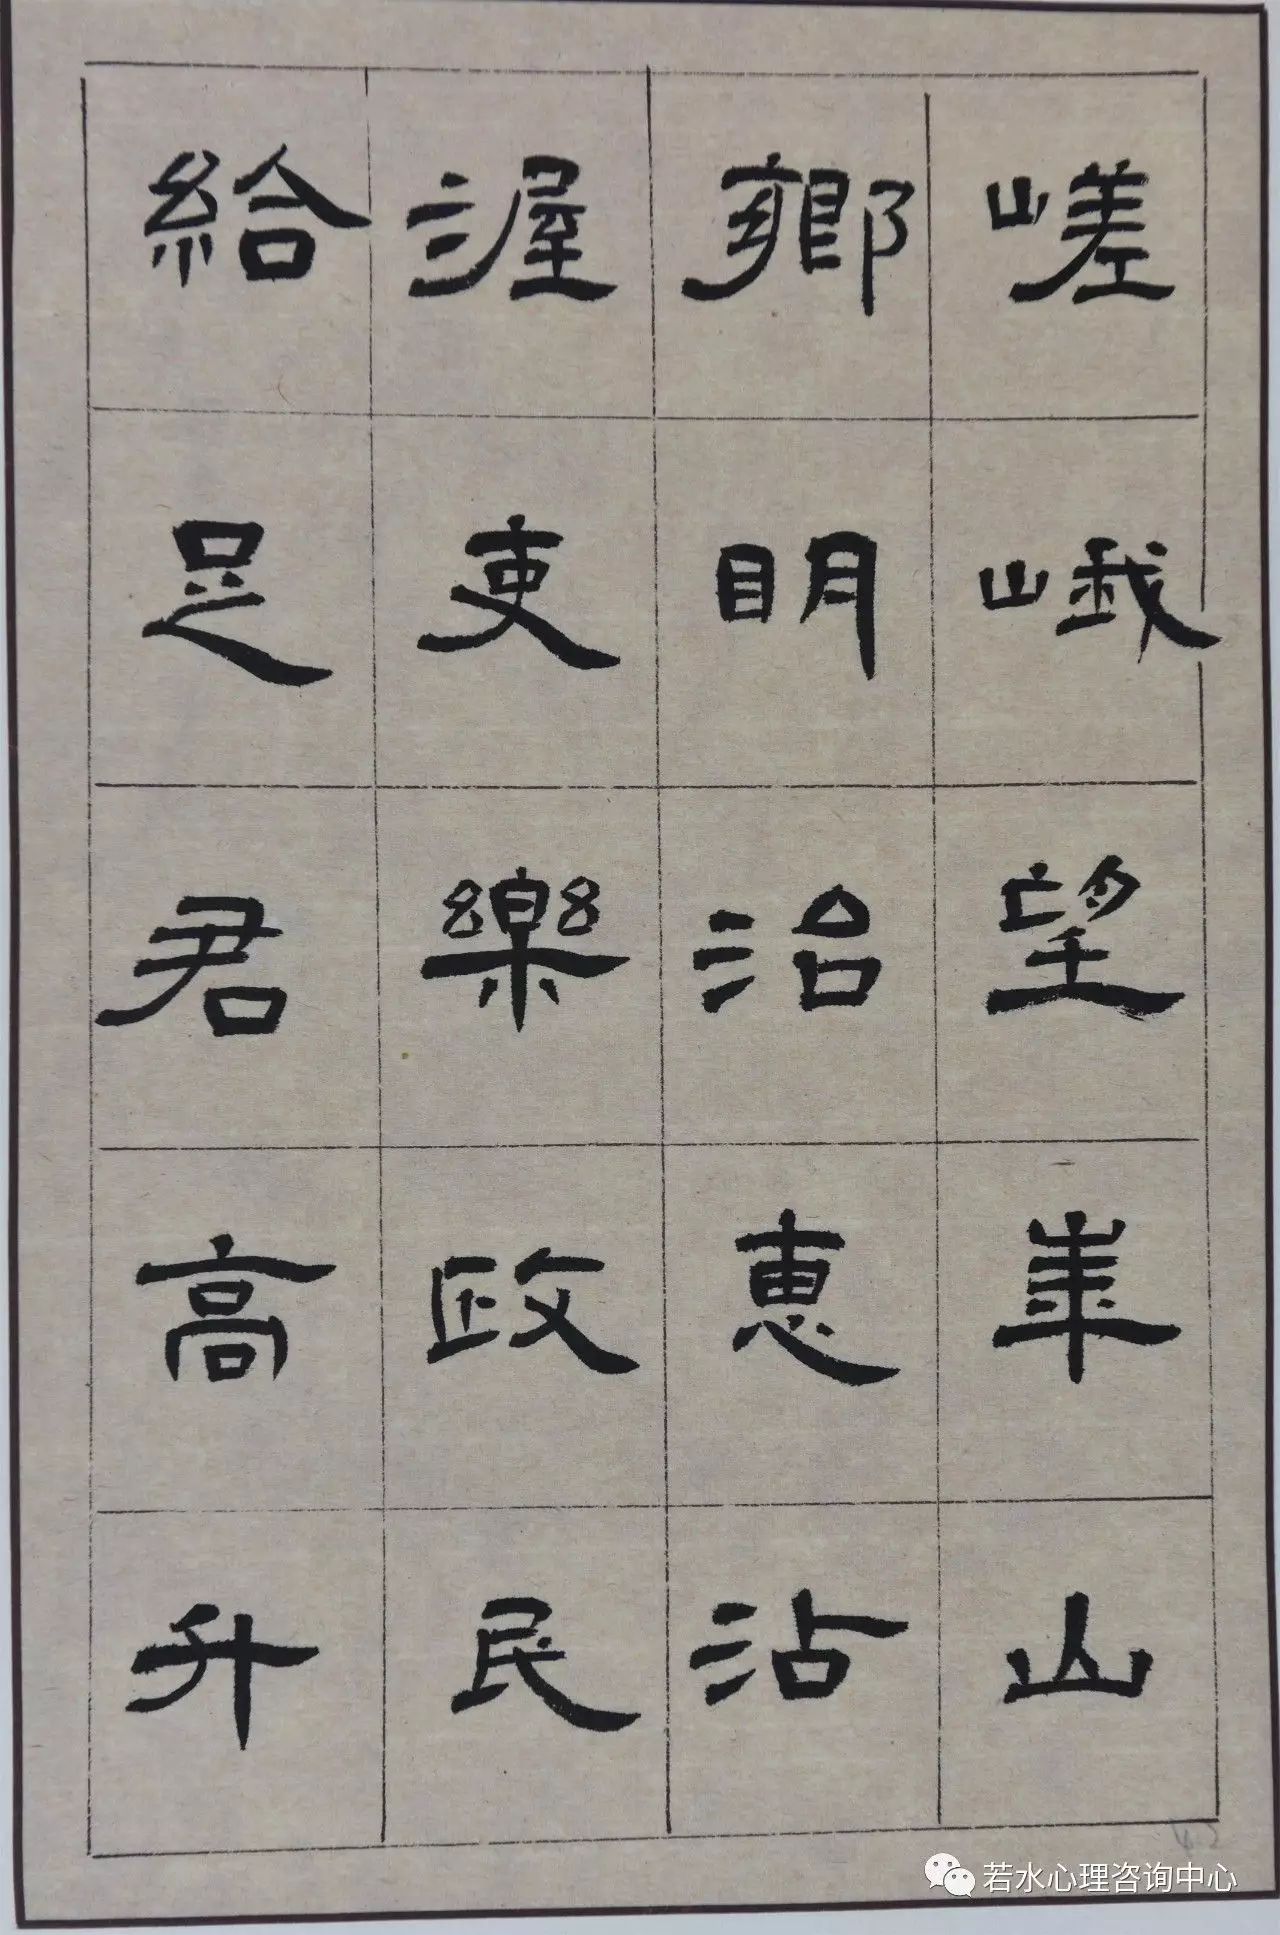 嵯峨望華山
鄉明治惠沾
渥吏樂政民
給足君高升
若水心理咨询中心